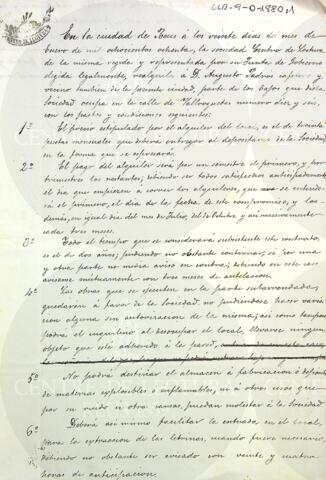 CLR-9-0-1880-1
En la ciudad de Reus á los veinte dias del mes de
Enero de mil ochocientos ochenta, la sociedad Centro de Lectura
de la misma regida y representada por su Junta de Gobierno
elegida legalmente, realquila á D. Augusto Padrós
vecino tambien de la presente ciudad, parte de los bajos que dicha
Sociedad ocupa en la calle de Vallroquetes número diez y seis,
con los pactos y condiciones siguientes:
1ª El precio estipulado por el alquiler del local, es el de treinta
pesetas mensuales que deberá entregar al depositario de la Sociedad
en la forma que se espresará.
2ª El pago del alquiler será por un semestre el primero, y por
trimestres los restantes; debiendo ser todos satisfechos anticipadamente
el dia que empiezen á correr dos alquileres, que se entenderá
el primero, el dia de la fecha de este compromiso, y los
demás, en igual dia del mes de Julio, del de Octubre y así sucesivamente
cada tres meses.
3ª Todo el tiempo que se considerará subsistente este contrato,
es el de dos años; pudiendo no obstante continuar, si por una
y otra parte no media aviso en contra; debiendo en este caso
avisarse mútuamente con tres meses de antelacion.
4ª Las obras que se ejecuten en la parte subarrendada,
quedarán á favor de la Sociedad, no pudiéndose hacer variacion
alguna sin autorizacion de la misma; así como tampoco
podrá el inquilino al desocupar el local, llevarse ningun
objeto que esté adherido á la pared,
5ª No podrá destinar el almacen á fabricacion ó depósito
de materias explosibles ó inflamables, ni á otros usos que
por su ruido ú otra causa, puedan molestar á la Sociedad.
6ª Deberá así mismo facilitar la entrada en el local,
para la extraccion de las letrinas, cuando fuere necesario,
debiendo no obstante ser avisado con veinte y cuatro
horas de anticipacion.